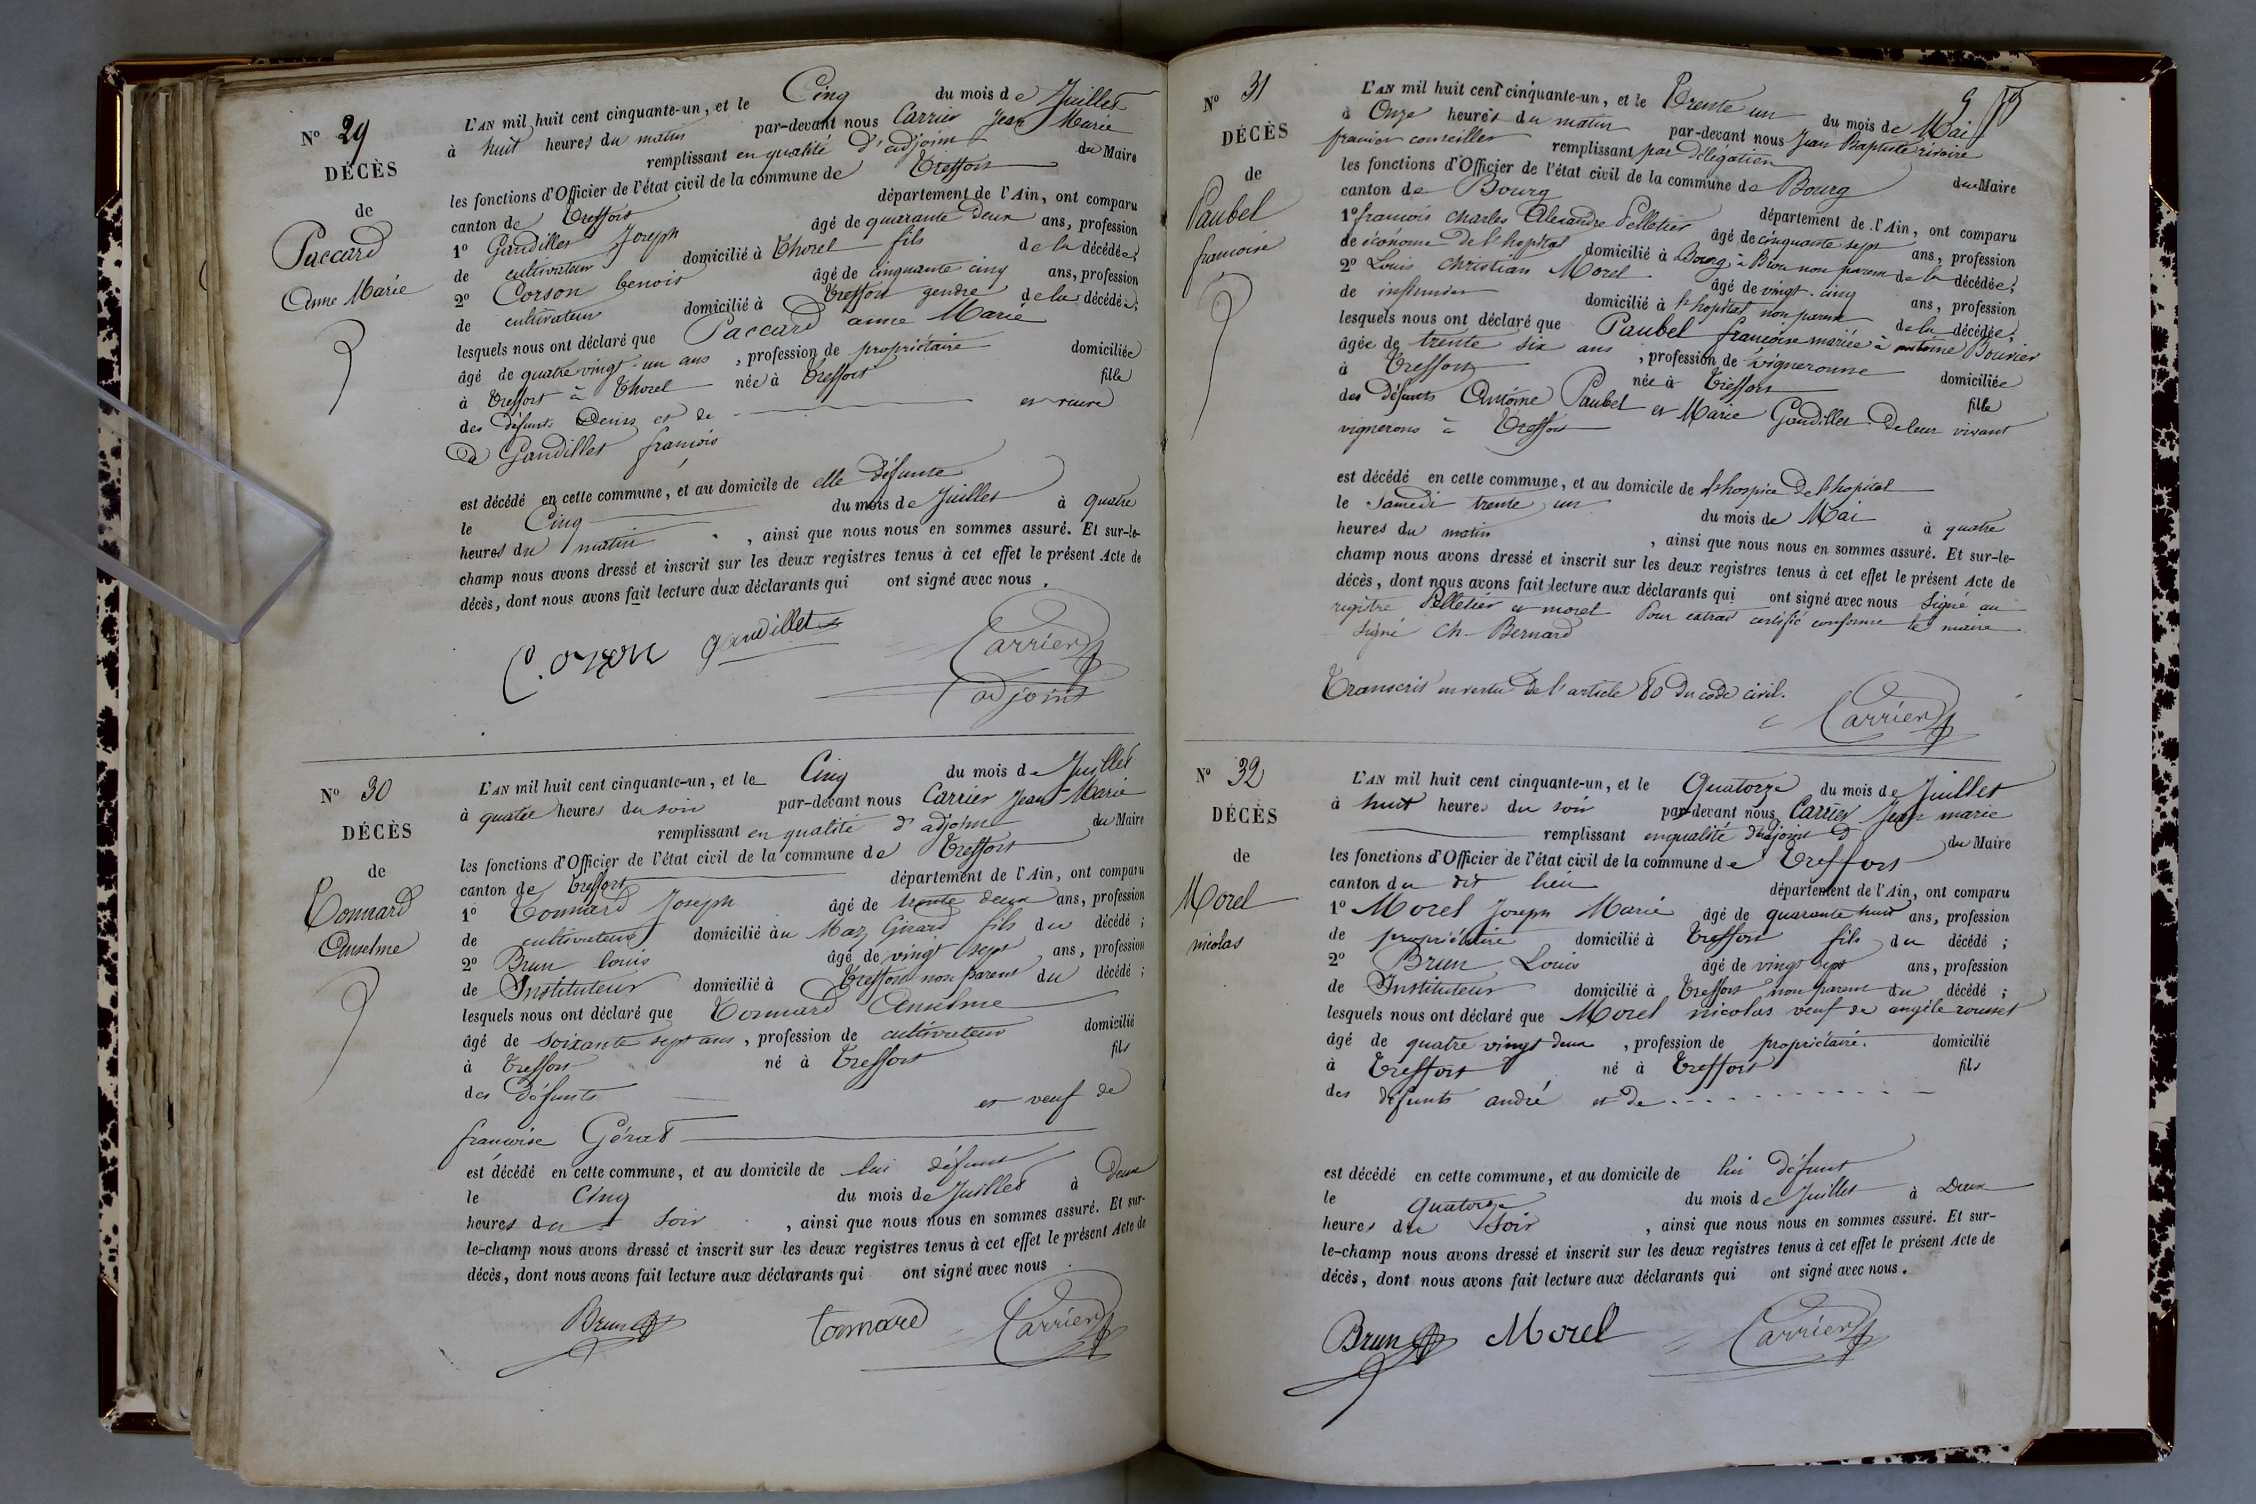 N° 29
DÉCÈS
de
Paccard
Anne Marie
L'AN mil huit cent cinquante-un, et le Cinq du mois de Juillet
à huit heures du matin par-devant nous Carrier Jean Marie
remplissant en qualité d'adjoint du Maire
les fonctions d'Officier de l'état civil de la commune de Treffort
canton de Treffort département de l'Ain, ont comparu
1° Gaudillet Joseph âgé de quarante deux ans, profession
de cultivateur domicilié à Thorel fils de la décédée;
2° Corson benoit âgé de cinquante cinq ans, profession
de cultivateur domicilié à Treffort gendre de la décédée;
lesquels nous ont déclaré que Paccard anne Marie
âgé de quatre vingt-un ans, profession de propriétaire domiciliée
à Treffort à Thorel née à Treffort fille
des défunts Denis et de et veuve
de Gaudillet francois
est décédé en cette commune, et au domicile de elle défunte
le Cinq du mois de Juillet à quatre
heures du matin, ainsi que nous nous en sommes assuré. Et sur-le-
champ nous avons dressé et inscrit sur les deux registres tenus à cet effet le présent Acte de
décès, dont nous avons fait lecture aux déclarants qui ont signé avec nous.
Corson gaudillet Carrier
adjoint
N° 30
DÉCÈS
de
Tonnard
Anselme
L'AN mil huit cent cinquante-un, et le Cinq du mois de Juillet
à quatre heures du soir par-devant nous Carrier Jean Marie
remplissant en qualité d'adjoint du Maire
les fonctions d'Officier de l'état civil de la commune de Treffort
canton de Treffort département de l'Ain, ont comparu
1° Tonnard Joseph âgé de trente deux ans, profession
de cultivateur domicilié au Maz Girard fils du décédé;
2° Brun Louis âgé de vingt sept ans, profession
de Instituteur domicilié à Treffort non parent du décédé;
lesquels nous ont déclaré que Tonnard Anselme
âgé de soixante sept ans, profession de cultivateur domicilié
à Treffort né à Treffort fils
des défunts et veuf de
francoise
est décédé en cette commune, et au domicile de lui défunt
le Cinq du mois de Juillet à Deux
heures du soir, ainsi que nous nous en sommes assuré. Et sur-
le-champ nous avons dressé et inscrit sur les deux registres tenus à cet effet le présent Acte de
décès, dont nous avons fait lecture aux déclarants qui ont signé avec nous
Brun tonnard Carrier
N° 31
DÉCÈS
de
Paubel
francoise
L'AN mil huit cent cinquante-un, et le Trente un du mois de Mai
à Onze heures du matin par-devant nous Jean Baptiste
premier conseiller remplissant par délégation du Maire
les fonctions d'Officier de l'état civil de la commune de Bourg
canton de Bourg département de l'Ain, ont comparu
1° francois charles Alexandre Pelletier âgé de cinquante sept ans, profession
de économe de l'hopital domicilié à Bourg à Brou non parent de la décédée;
2° Louis Christian Morel âgé de vingt-cinq ans, profession
de infirmier domicilié à l'hopital non parent de la décédée;
lesquels nous ont déclaré que Paubel francoise mariée à antoine Bouvier
âgée de trente six ans, profession de vigneronne domiciliée
à Treffort née à Treffort fille
des défunts Antoine Paubel et Marie Gaudillet de leur vivant
vignerons à Treffort
est décédé en cette commune, et au domicile de l'hospice de l'hopital
le Samedi trente un du mois de Mai à quatre
heures du matin, ainsi que nous nous en sommes assuré. Et sur-le-
champ nous avons dressé et inscrit sur les deux registres tenus à cet effet le présent Acte de
décès, dont nous avons fait lecture aux déclarants qui ont signé avec nous Signé au
registre Pelletier et morel Pour extrait certifié conforme le maire
signé Ch. Bernard
Transcrit en vertu de l'article 80 du code civil.
Carrier
N° 32
DÉCÈS
de
Morel
nicolas
L'AN mil huit cent cinquante-un, et le Quatorze du mois de Juillet
à huit heures du soir par-devant nous Carrier Jean marie
remplissant en qualité d'adjoint du Maire
les fonctions d'Officier de l'état civil de la commune de Treffort
canton du dit lieu département de l'Ain, ont comparu
1° Morel Joseph Marie âgé de quarante huit ans, profession
de propriétaire domicilié à Treffort fils du décédé;
2° Brun Louis âgé de vingt sept ans, profession
de Instituteur domicilié à Treffort non parent du décédé;
lesquels nous ont déclaré que Morel nicolas veuf de angèle rousset
âgé de quatre vingt deux, profession de propriétaire. domicilié
à Treffort né à Treffort fils
des défunts andré et de
est décédé en cette commune, et au domicile de lui défunt
le quatorze du mois de Juillet à Deux
heures du Soir, ainsi que nous nous en sommes assuré. Et sur-
le-champ nous avons dressé et inscrit sur les deux registres tenus à cet effet le présent Acte de
décès, dont nous avons fait lecture aux déclarants qui ont signé avec nous.
Brun Morel Carrier